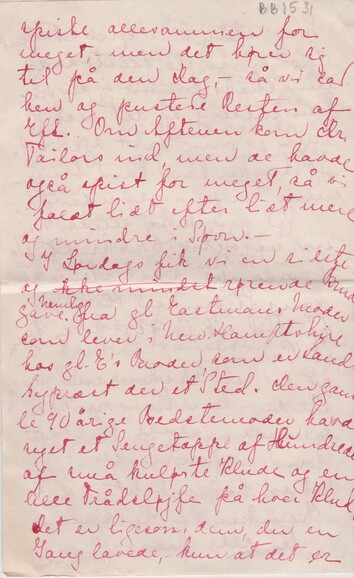 BB1531
spiste allesammen for
meget, - men det hører sig
til på den Dag, - så vi sad
hen og pustede Resten af
Eft. Om Aftenen kom Mr.
Tailors ind, men de havde
også spist for meget, så vi
faldt lidt efter lidt mere
og mindre i Søvn. -
I Lørdags fik vi en sidste
og ikke mindst rørende
gave. Nemlig fra gl. Eastmans Moder
som lever i New Hamptshire
hos gl. E's Broder som er Lands
bypræst der et Sted. Den gam
le 90 årige Bedstemoder havde
syet et Sengetæppe af Hundrede
af små kulørte Klude og en
Trådsløjfe på hver Klud
det er ligesom dem, du en
Gang lavede, - kun at det er